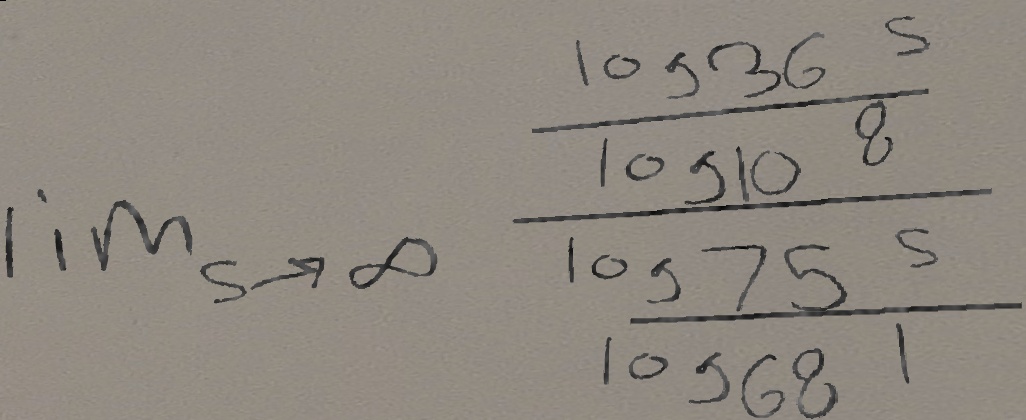 lim s→∞ log36 s / log10 8 / log75 s / log68 1